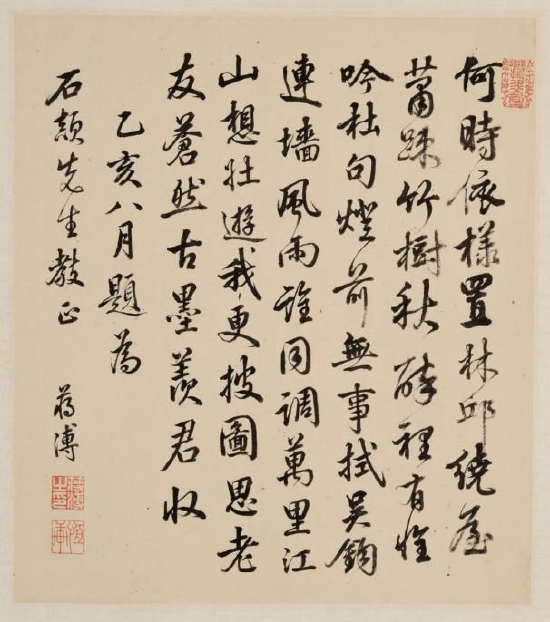 何時依樣置林邱繞屋
蕭踈竹樹秋醉裡有
吟杜句燈前無事拭吳鈎
連墻風雨誰同調萬里江
山想壯遊我更披圖思老
友蒼然古墨羨君収
乙亥八月題為
石頡先生教正
蔣溥